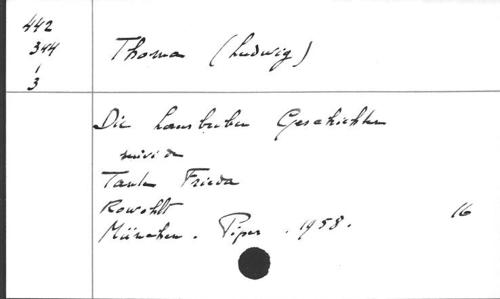 442
344
1
3
Thoma (Ludwig)
Die Lausbuben Geschichten
suivi de
Tante Frieda
Rowohlt
16
München. Piper. 1958.